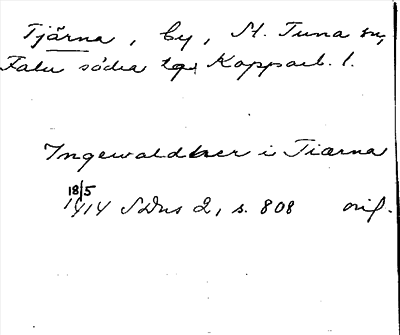 Tjärna, by, St. Tuna sn,
Falu södra tgs Kopparb. l.
Ingewaldber i Tiærna
18/5
1414 SDns 2, s. 808 orig.